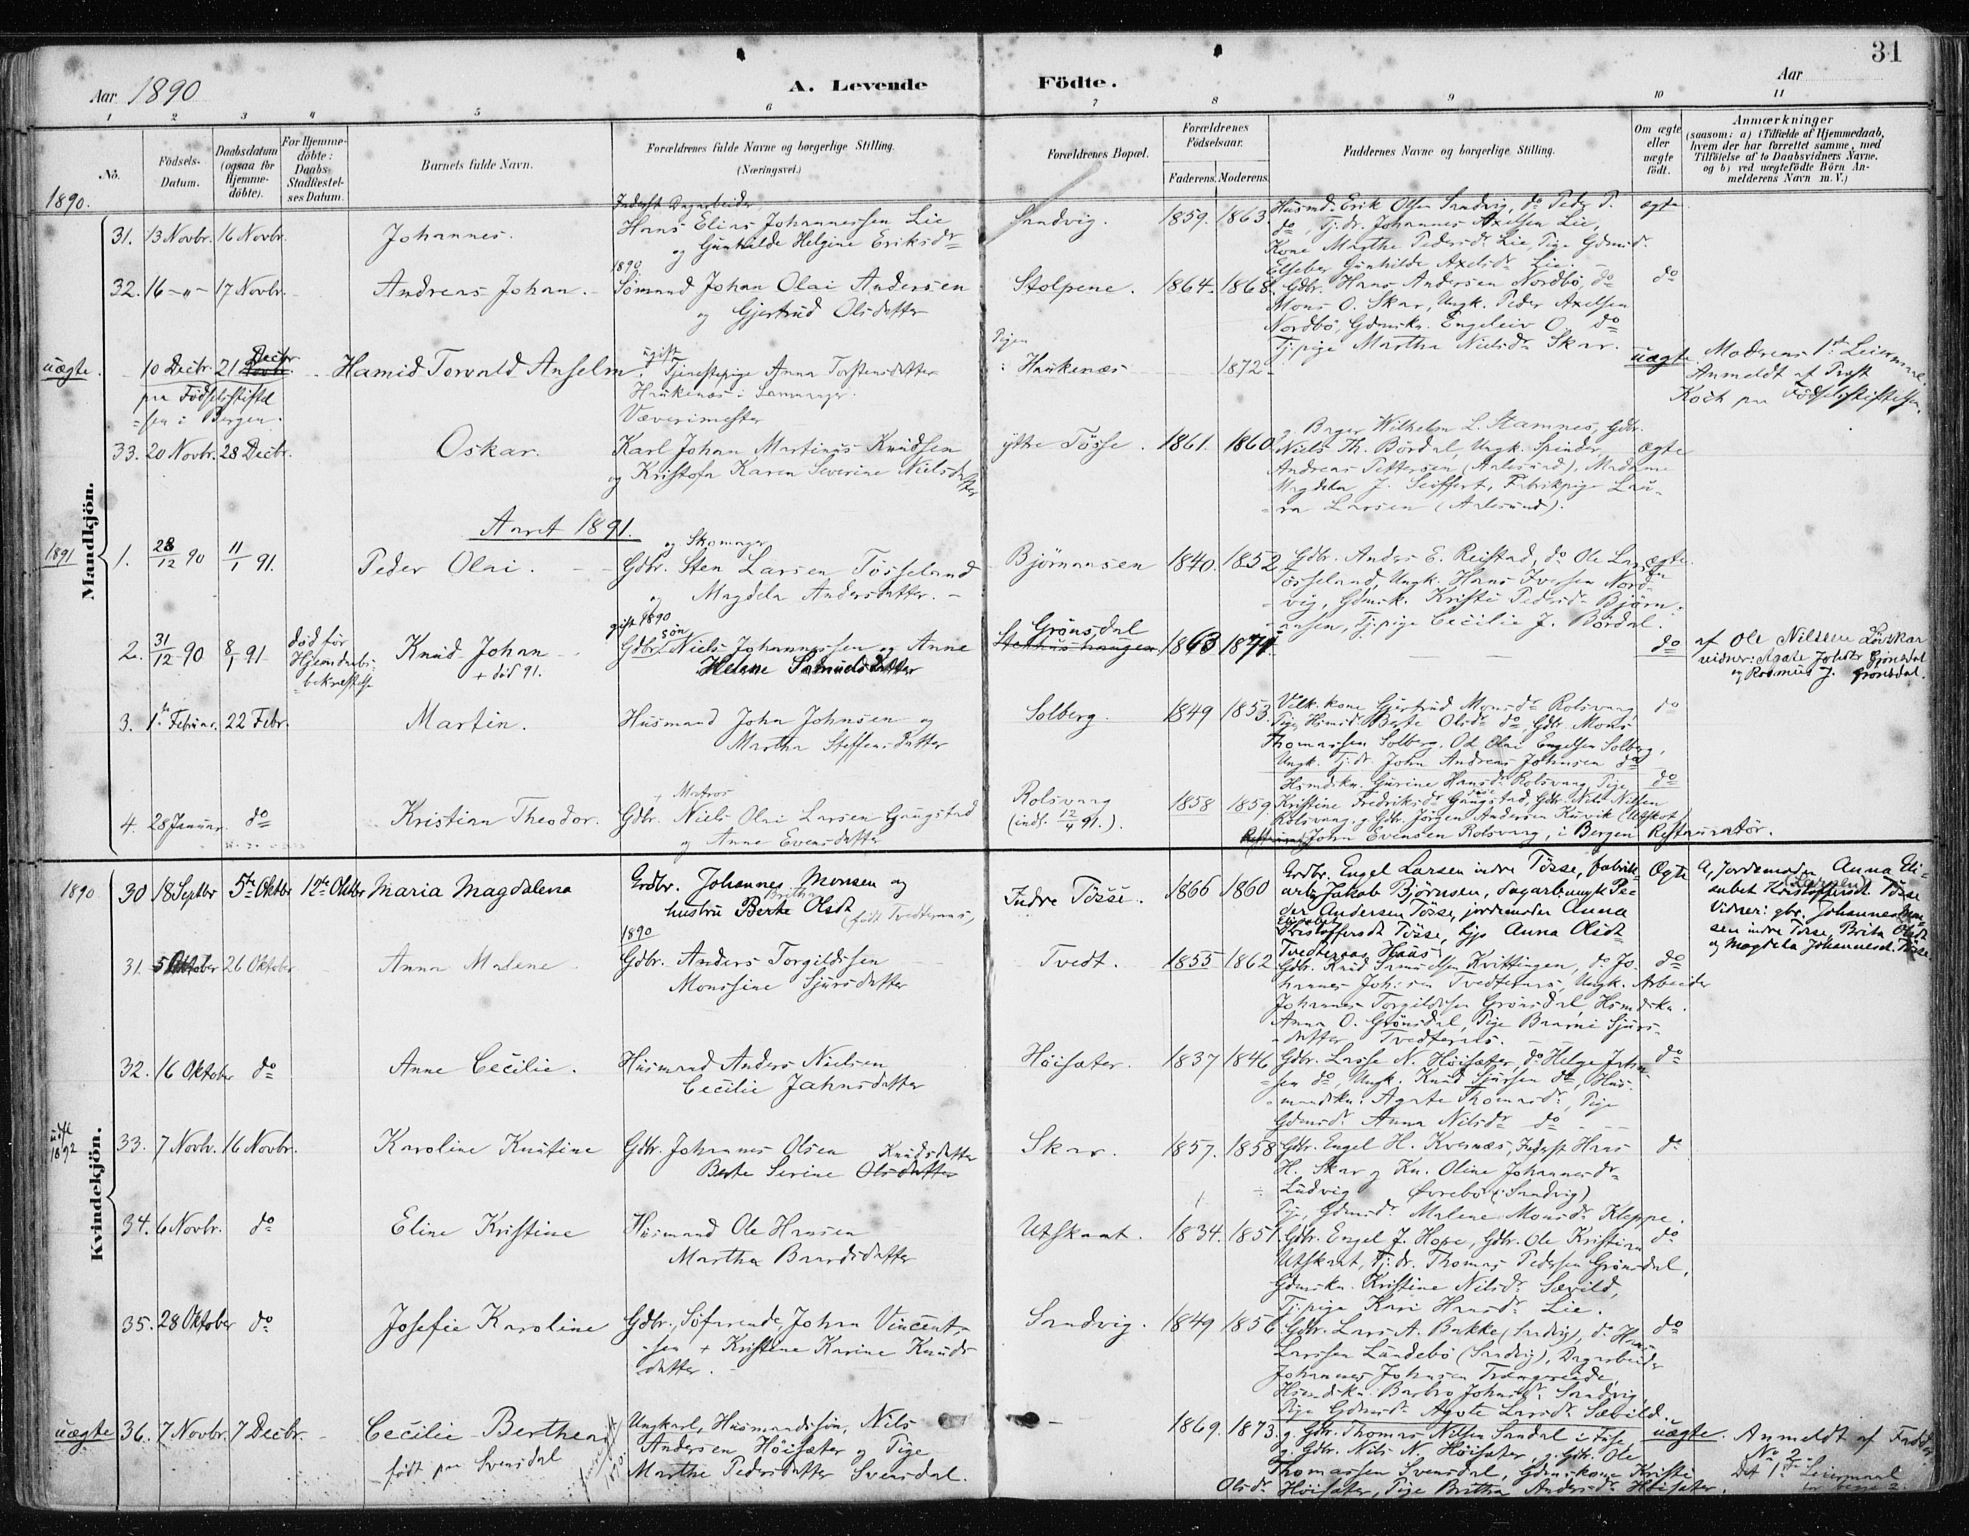 31
Aar 1890
A. Levende Födte.
Aar
1 2 3 4 5 6 7 8 9 10 11
Nö.
Födsels-Datum.
Daabsdatum (ogsaa for Hjemme-döbte).
For Hjemme-döbte: Daabs-Stadfæstel-ses Datum.
Barnets fulde Navn.
Forældrenes fulde Navne og borgerlige Stilling.
(Næringsvei.)
Forældrenes Bopæl.
Forældrenes Födselsaar.
Faderens. Moderens.
Faddernes Navne og borgerlige Stilling.
Om ægte eller uægte födt.
Anmærkninger
(saasom: a) i Tilfælde af Hjemmedaab, hvem der har forrettet samme, med Tilföielse af to Daabsvidners Navne, og b) ved uægtefödte Börn An-melderens Navn m. V.)
Mandkjön.
1890.
31. 13 Novbr. 16 Novbr. Johannes.
Inderst Dagarbeider
Hans Elias Johannessen Lie
og Gunhilde Helgine Eriksdr
Sandvig. 1859. 1863.
Husmd. Erik Olsen Sandvig, do Peder P.
do, Tj.dr. Johannes Axelsen Lie,
Kone Marthe Pedersdr Lie, Pige Gdmd.
Elsebe Gunhilde Axelsdr Lie.
ægte
32. 16 -"- 17 Novbr. Andreas Johan.
1890
Sömand Johan Olai Andersen
og Gjertrud Olsdatter
Stolpene. 1864. 1868.
Gdbr. Hans Andersen Nordbö, do
Mons O. Skar, Ungk. Peder Axelsen
Nordbö, Gdmskn. Engeleiv O. do
Tj.pige Martha Nielsdr Skar.
do
uægte. 10 Decbr. 21 Decbr
paa Födselsstiftel
sen i Bergen.
Hamid Torvald Anselm
ugift
Tjenestepige Anna Torstensdatter
Haukenæs i Samnanger.
Pigen
Haukenæs 1872
uægte
Moderens 1ste Leiermaal.
Anmeldt af Præst
Koch paa Födselsstiftelsen.
33. 20 Novbr. 28 Decbr. Oskar.
Væverimester
Karl Johan Martinus Knudsen
og Kristofa Karen Severine Nielsdatter
ytre Tösse. 1861. 1860.
g. Bager Wilhelm L. Stamnes, Gdbr.
Niels Th. Bördal, Ungk. Spinder
Andreas Pettersen (Aalesund), Madame
Magdela J. Seiffert, Fabrikpige Lau-
ra Larsen (Aalesund).
ægte
Aaret 1891.
1891
1. 28/12 90 11/1 91. Peder Olai.
og Skomager
Gdbr. Sten Larsen Tösseland
og Magdela Andersdatter.
Björnaasen 1840. 1852
Gdbr. Anders E. Reistad, do Ole Larsen
Tösseland, Ungk. Hans Iversen Nord-
vig, Gdmsk. Kristi Pedersdr Björn-
aasen, Tj.pige Cecilie J. Bördal.
ægte.
2. 31/12 90 8/1 91
död för
Hjemdaabs-
bekræftelse
Knud Johan
+ död 91.
gift 1890
sön
Gdbr. Niels Johannessen og Anne
Helene Samuelsdatter
Grönsdal
1863 1871
do
af Ole Nilsen
vidner: Agate Johdtr Grönsdal
og Rasmus J. Grönsdal.
3. 1ste Februar. 22 Febr. Martin.
Husmand John Johnsen og
Martha Steffensdatter
Solberg. 1849 1853
Gjertrud Monsdr Rolsvaag,
Pige Berte Olsdr do, Gdbr. Mons
Thomassen Solberg, Olai Engelsen Solberg,
Ungk. Tj.dr. John Andreas Johnsen do
do
4. 28 Januar. do Kristian Theodor.
+ Matros
Gdbr. Niels Olai Larsen Gaugstad
og Anne Evensdatter
Rolsvaag
(indf. 12/4 91.).
1858 1859
Husmdskn. Gurine Hansdr Rolsvaag, Pige
Kristine Fredriksdr Gaugstad, Gdbr. Nils Nilsen
Rolsvaag, g. Gdbr. Jörgen Andersen Kuvik
John Evensen Rolsvaag, i Bergen Restauratör.
do
Kvindekjön.
1890
30 18 Septbr 5te Oktbr 12te Oktbr Maria Magdalena
Grdbr. Johannes Monsen og
hustru Berte Olsdt
(födt Tvedteraas)
Indre Tösse. 1866 1860
Grdbr. Engel Larsen indre Tösse, fabrik-
arb. Jakob Björnsen, Sagarb. ungk Pe-
der Andersen Tösse, jordemoder Anna
Elisabet
Kristoffersdt Tösse, tjp Anna Olsdt
Tvedteraas Haus
Ægte
A, Jordemoder Anna Eli-
sabet Kristoffersdt. Tösse
Vidner: gbr. Johannes Mon-
sen indre Tösse, Brita Olsdt
og Magdela Johannesd. Tösse
31. 5 Oktober 26 Oktober Anna Malene
1890
Gdbr. Anders Torgildssen
Monsine Sjursdatter
Tvedt. 1855 1862
Gdbr. Knud Samuelsen Kvittingen, do Jo-
hannes Johnsen Tvedteraas, Ungk. Arbeider
Johannes Torgildsen Grönsdal, Hsmdskn.
Anna O. Grönsdal, Pige Sjurs-
datter Tvedteraas.
do
32. 16 Oktober do Anne Cecilie.
Husmand Anders Nielsen
Cecilie Jahnsdatter
Höisæter. 1837 1846
Gdbr. Lasse N. Höisæter, do Helge John-
sen do, Ungk. Knud Sjursen do, Hus-
mandskn. Agate Thomasdr, Pige
Gdmdr. Anna Nilsdr do
do
33. 7 Novbr. 16 Novbr. Karoline Knutine
Gdbr. Johannes Olsen
Knudsdatter
Berte Serine Olsdatter
Skar. 1857. 1858
Gdbr. Engel H. Kvernæs, Inderst Hans
H. Skar og Kn. Oline Johannesdr
Ludvig Övrebö (Sandvig)
Pige, Gdmdr. Malene Monsdr Kleppe.
do
34. 6 Novbr. do Eline Kristine
Husmand Ole Hansen
Martha Baardsdatter
Utskaat. 1834. 1851.
Gdbr. Engel J. Hope, Gdbr. Ole Kristian
Utskaat, Tj.dr. Thomas Pedersen Grönsdal,
Gdmskn. Kristine Nilsdr Sævild,
Tj.pige Kari Hansdr Lie.
do
35. 28 Oktober do Josefie Karoline
Gdbr., Söfarende, Johan Vincent-
sen + Kristine Karine Knuds-
datter.
Sandvig. 1849 1856
Gdbr. Lars A. Bakke (Sandvig), do Hans
Larssen Lundebö (Sandvig), Dagarbeider
Johannes Johnsen Trængereide,
Hsmdskn. Barbro Johnsdr Sandvig,
Pige Gdmdr. Agate Larsdr Sævild.
do
uægte 36. 7 Novbr. 7 Decbr. Cecilie Berthea
födt paa Svensdal
Ungkarl, Husmandssön, Nils
Andersen Höisæter og Pige
Marthe Pedersdatter Svensdal.
1869. 1873.
g. Gdbr. Thomas Nilsen Sandal i Fuse
g. Gdbr. Nils N. Höisæter, g. Gdbr. Ole
Thomassen Svensdal, Gdmskone Kristi
Olsdr Höisæter, Pige Britha Andersdr Höisæter.
uægte.
Anmeldt af Fadder
No 2
Det 1ste Leiermaal
for begge 2.